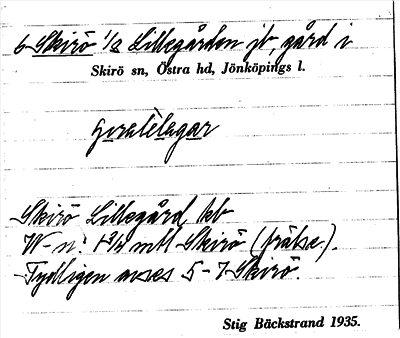 6 Skirö 1/2 Lillegården jb, gård i
Skirö sn, Östra hd, Jönköpings l.
Skirö Lillegård, kb
W-n: mtl Skirö (frälse).
Tydligen avses 5-7 Skirö.
Stig Bäckstrand 1935.